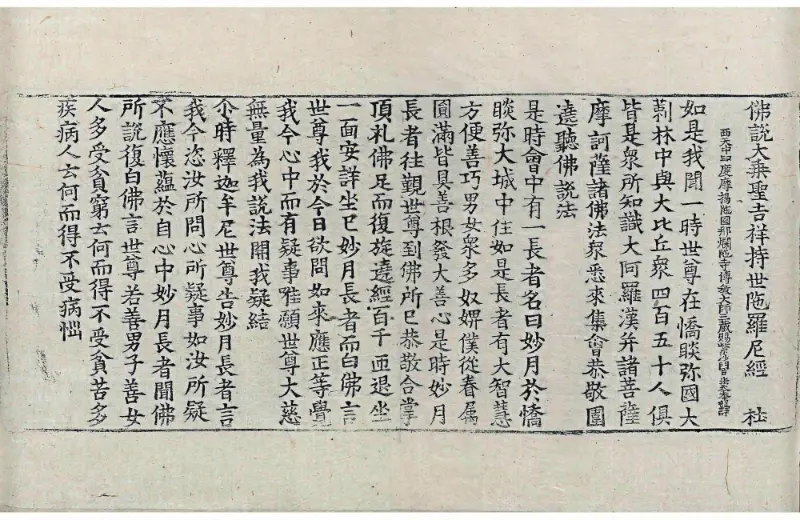 佛説大乗聖吉祥持世陁羅尼經 杜
西天中印度摩揭陁國那爛陁寺傳教大師三藏賜紫沙門臣法天奉詔譯
如是我聞一時世尊在憍睒弥國大
莿林中與大比丘衆四百五十人俱
皆是衆所知識大阿羅漢并諸菩薩
摩訶薩諸佛法衆悉來集會恭敬圍
遶聽佛説法
是時會中有一長者名曰妙月於憍
睒弥大城中住如是長者有大智慧
方便善巧男女衆多奴婢僕從眷屬
圓滿皆具善根發大善心是時妙月
長者往覲世尊到佛所已恭敬合掌
頂礼佛足而復旋遶經百千匝退坐
一面安詳坐已妙月長者而白佛言
世尊我於今日欲問如來應正等覺
我今心中而有疑事唯願世尊大慈
無量為我説法開我疑結
尒時釋迦牟尼世尊告妙月長者言
我今恣汝所問心所疑事如汝所疑
不應懷蘊於自心中妙月長者聞佛
所説復白佛言世尊若善男子善女
人多受貧窮云何而得不受貧苦多
疾病人云何而得不受病惱